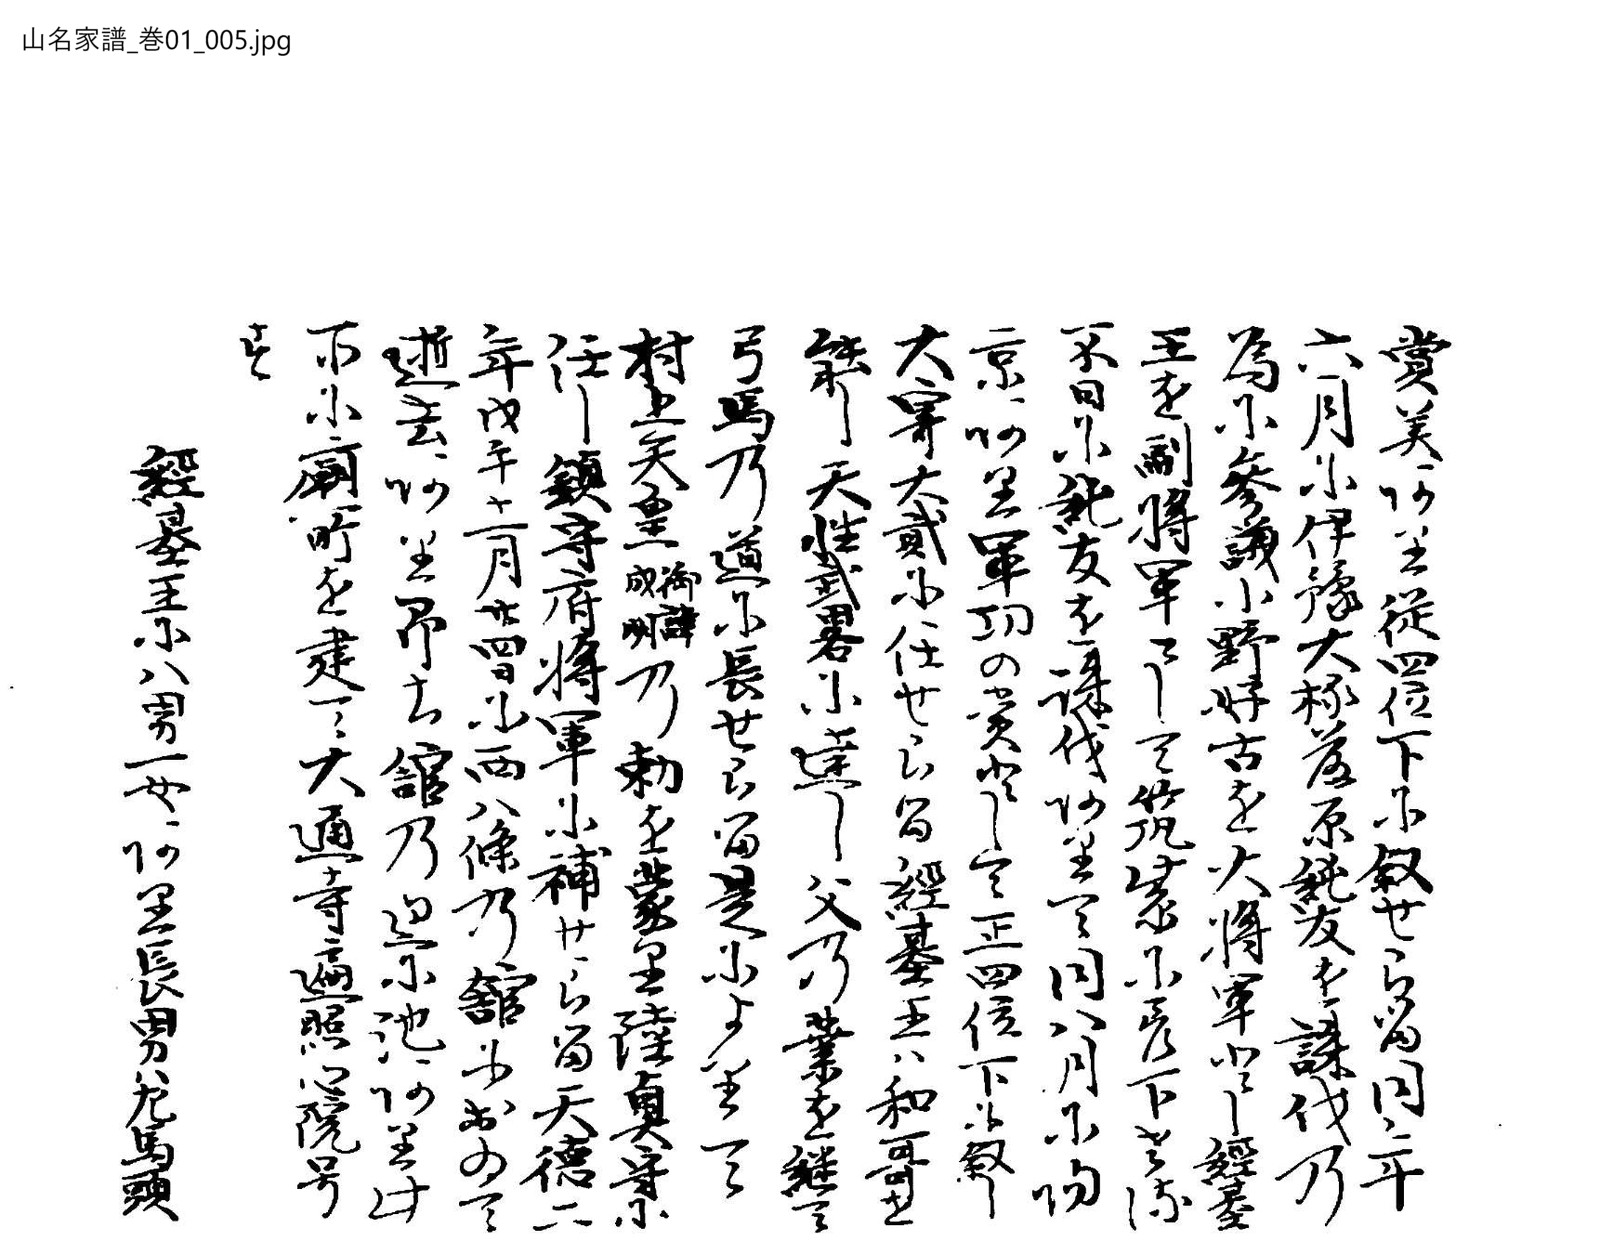 山名家譜_巻01_005.jpg
賞美ありて従四位下に叙せらる同三年
六月に伊豫大掾藤原純友を誅伐乃
為に参議小野好古を大将軍とし經基
王を副将軍として筑紫に差下さる
不日に純友を誅伐ありて同八月に帰
京あり軍功の賞として正四位下に叙し
大宰大貳に任せらる經基王ハ和哥を
能し天性武畧に達し父乃業を継て
弓馬乃道に長せらる是によりて
村上天皇御諱成明乃勅を蒙り陸奥守に
任し鎮守府将軍に補せらる天徳二
年戊午十一月廿四日に西八條乃舘におゐて
逝去あり即ち舘乃辺に池あり此
所に廟を建て大通寺遍照心院号
す
經基王に八男一女あり長男ハ左馬頭